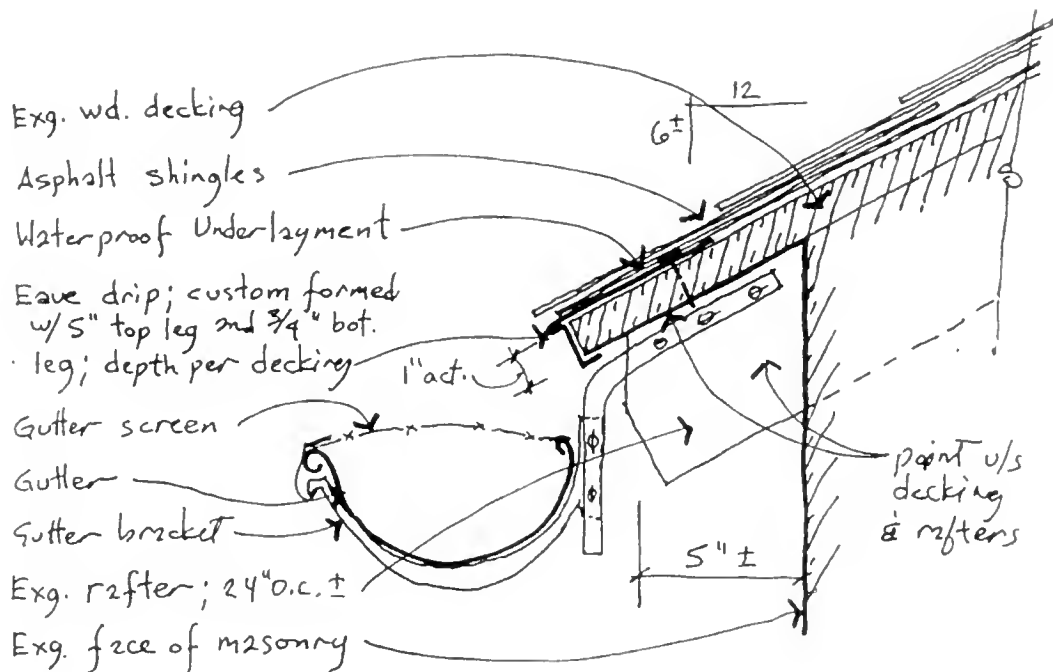 Exg. wd. decking
Asphalt shingles
Waterproof Underlayment
Eave drip; custom formed
w/5" top leg and 3/4" bot.
leg; depth per decking
Gutter screen
Gutter
Gutter bracket
Exg. rafter; 24"o.c. ±
Exg. face of masonry
12
6±
1"act.
5"±
paint u/s
decking
& rafters